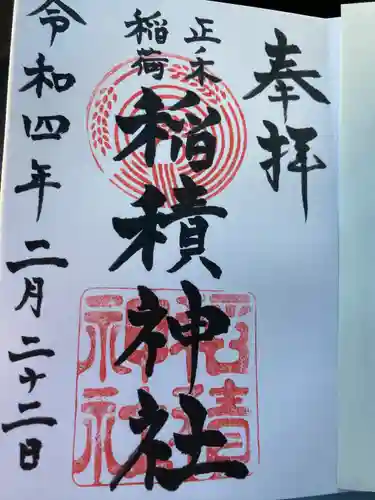 奉拝
正一木
稲荷
稲積神社
令和四年二月二十二日
稲積
神社